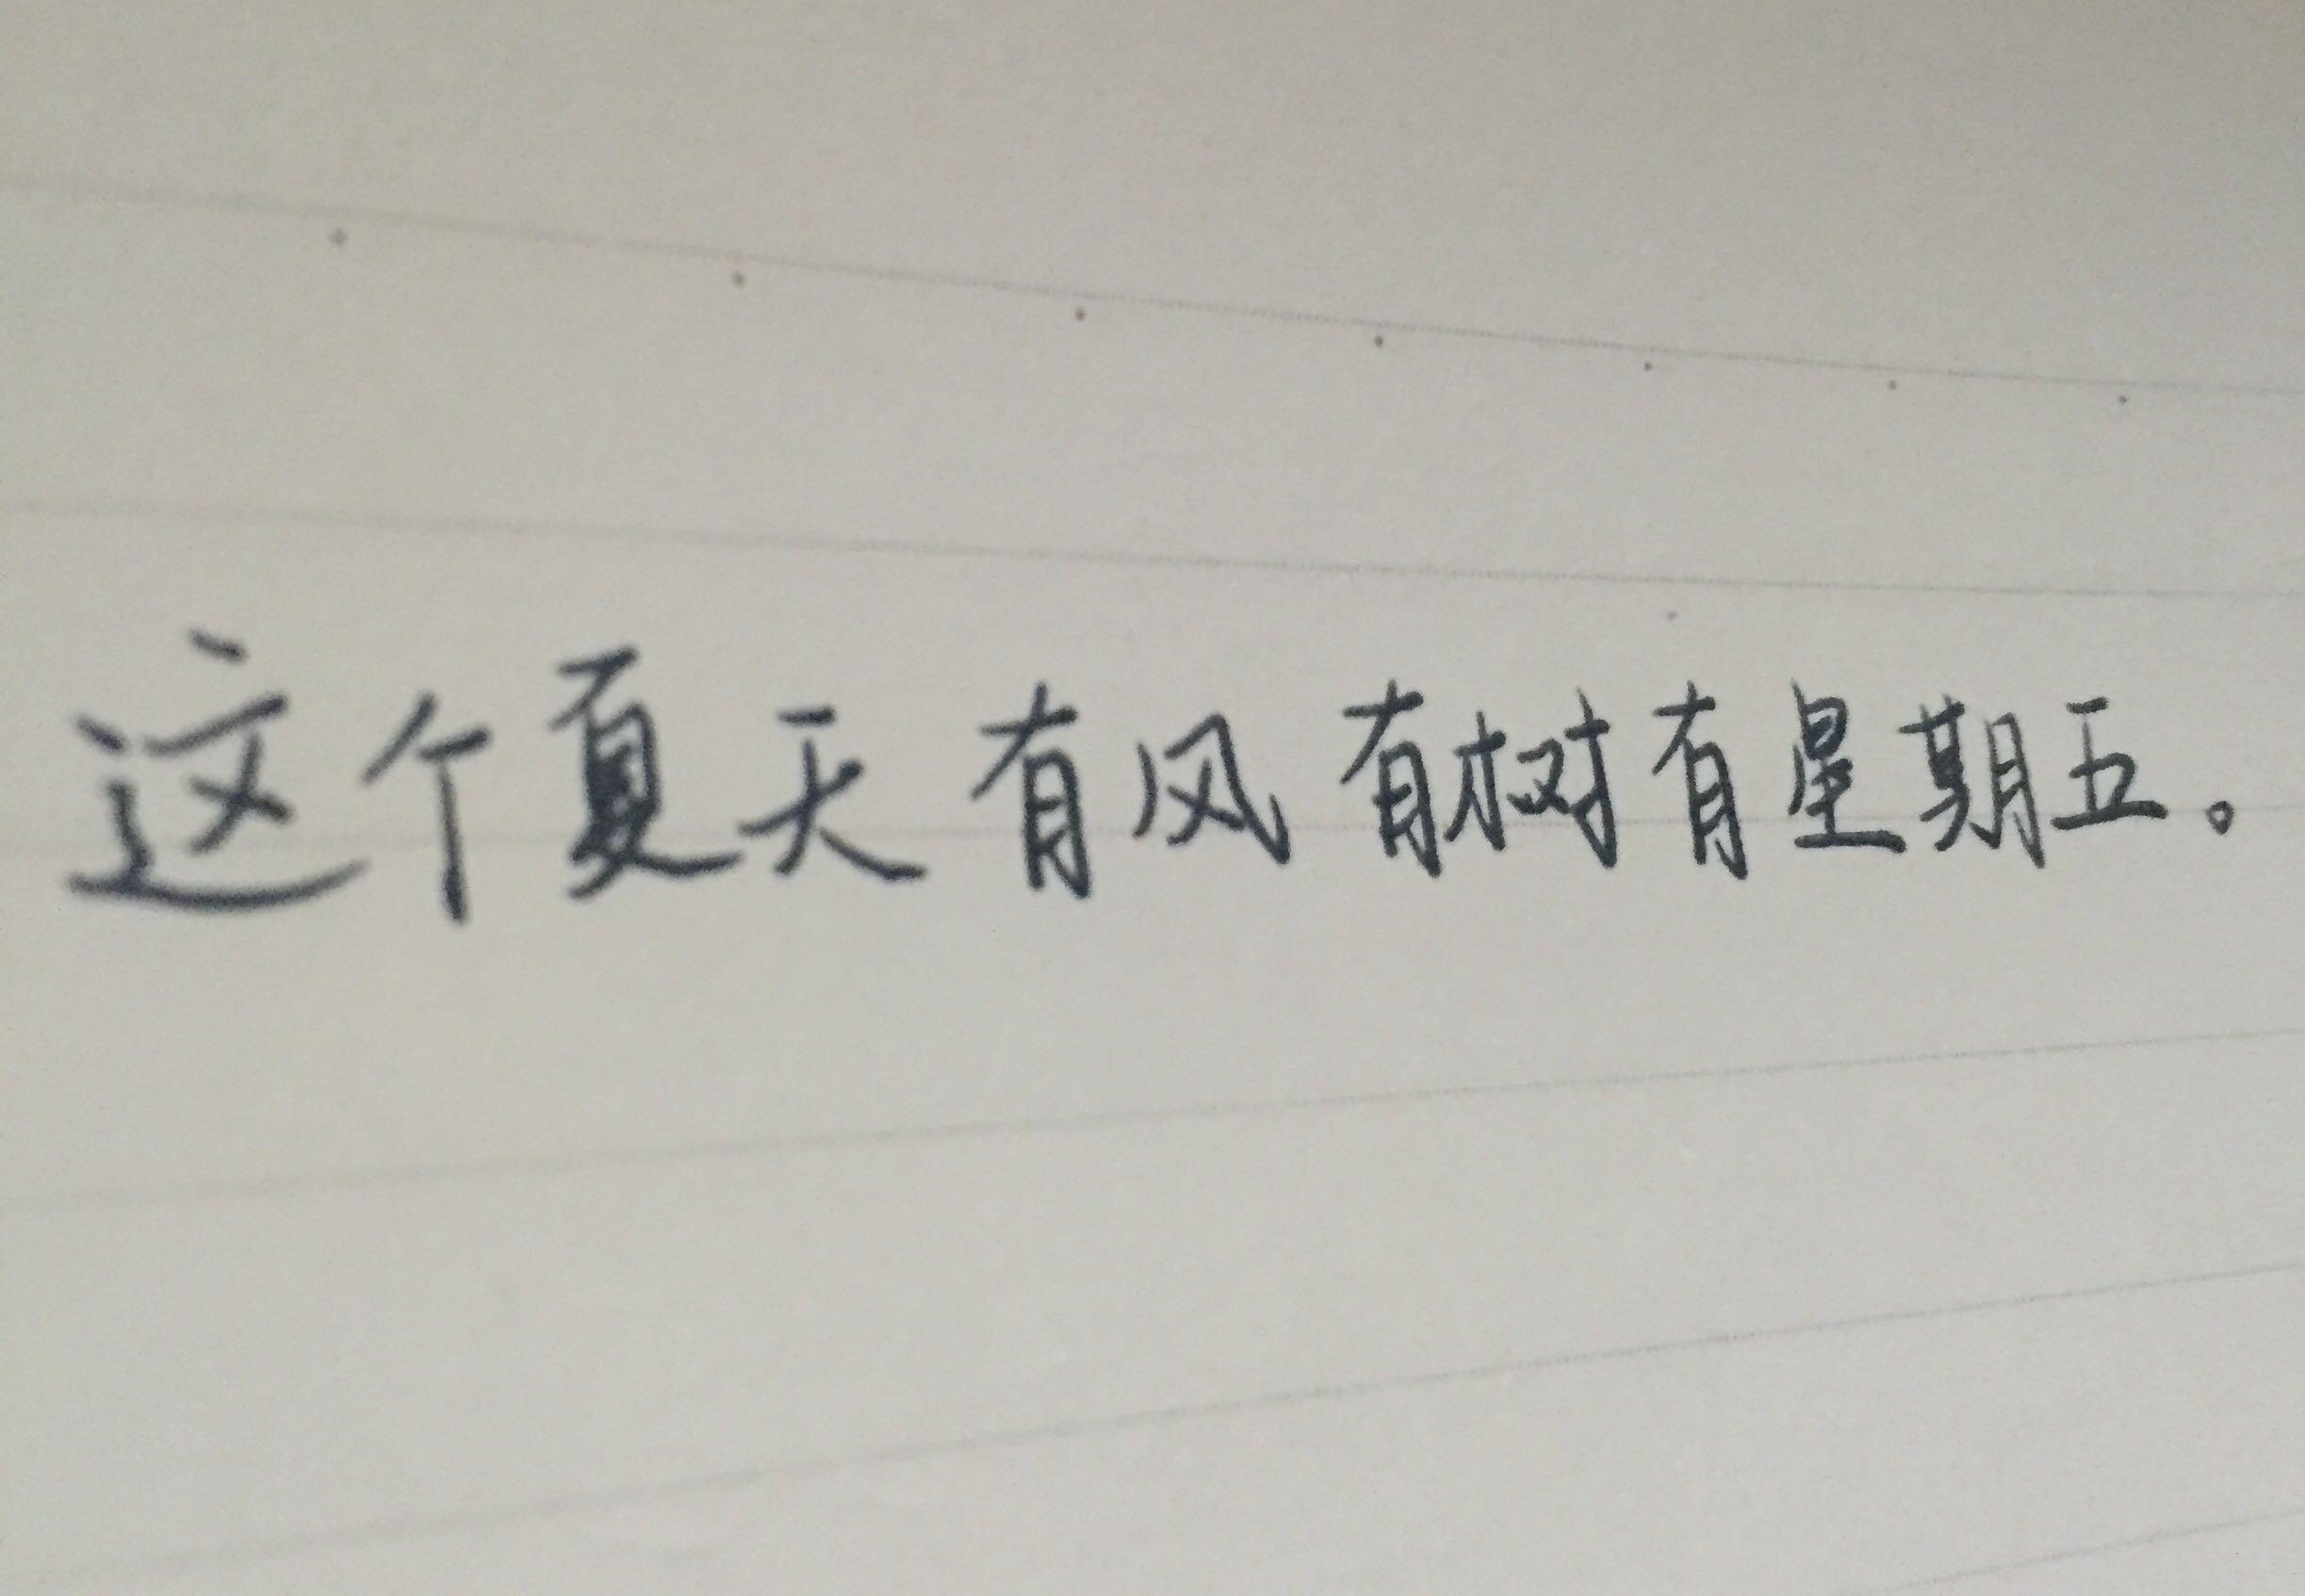 这个夏天有风有树有星期五。